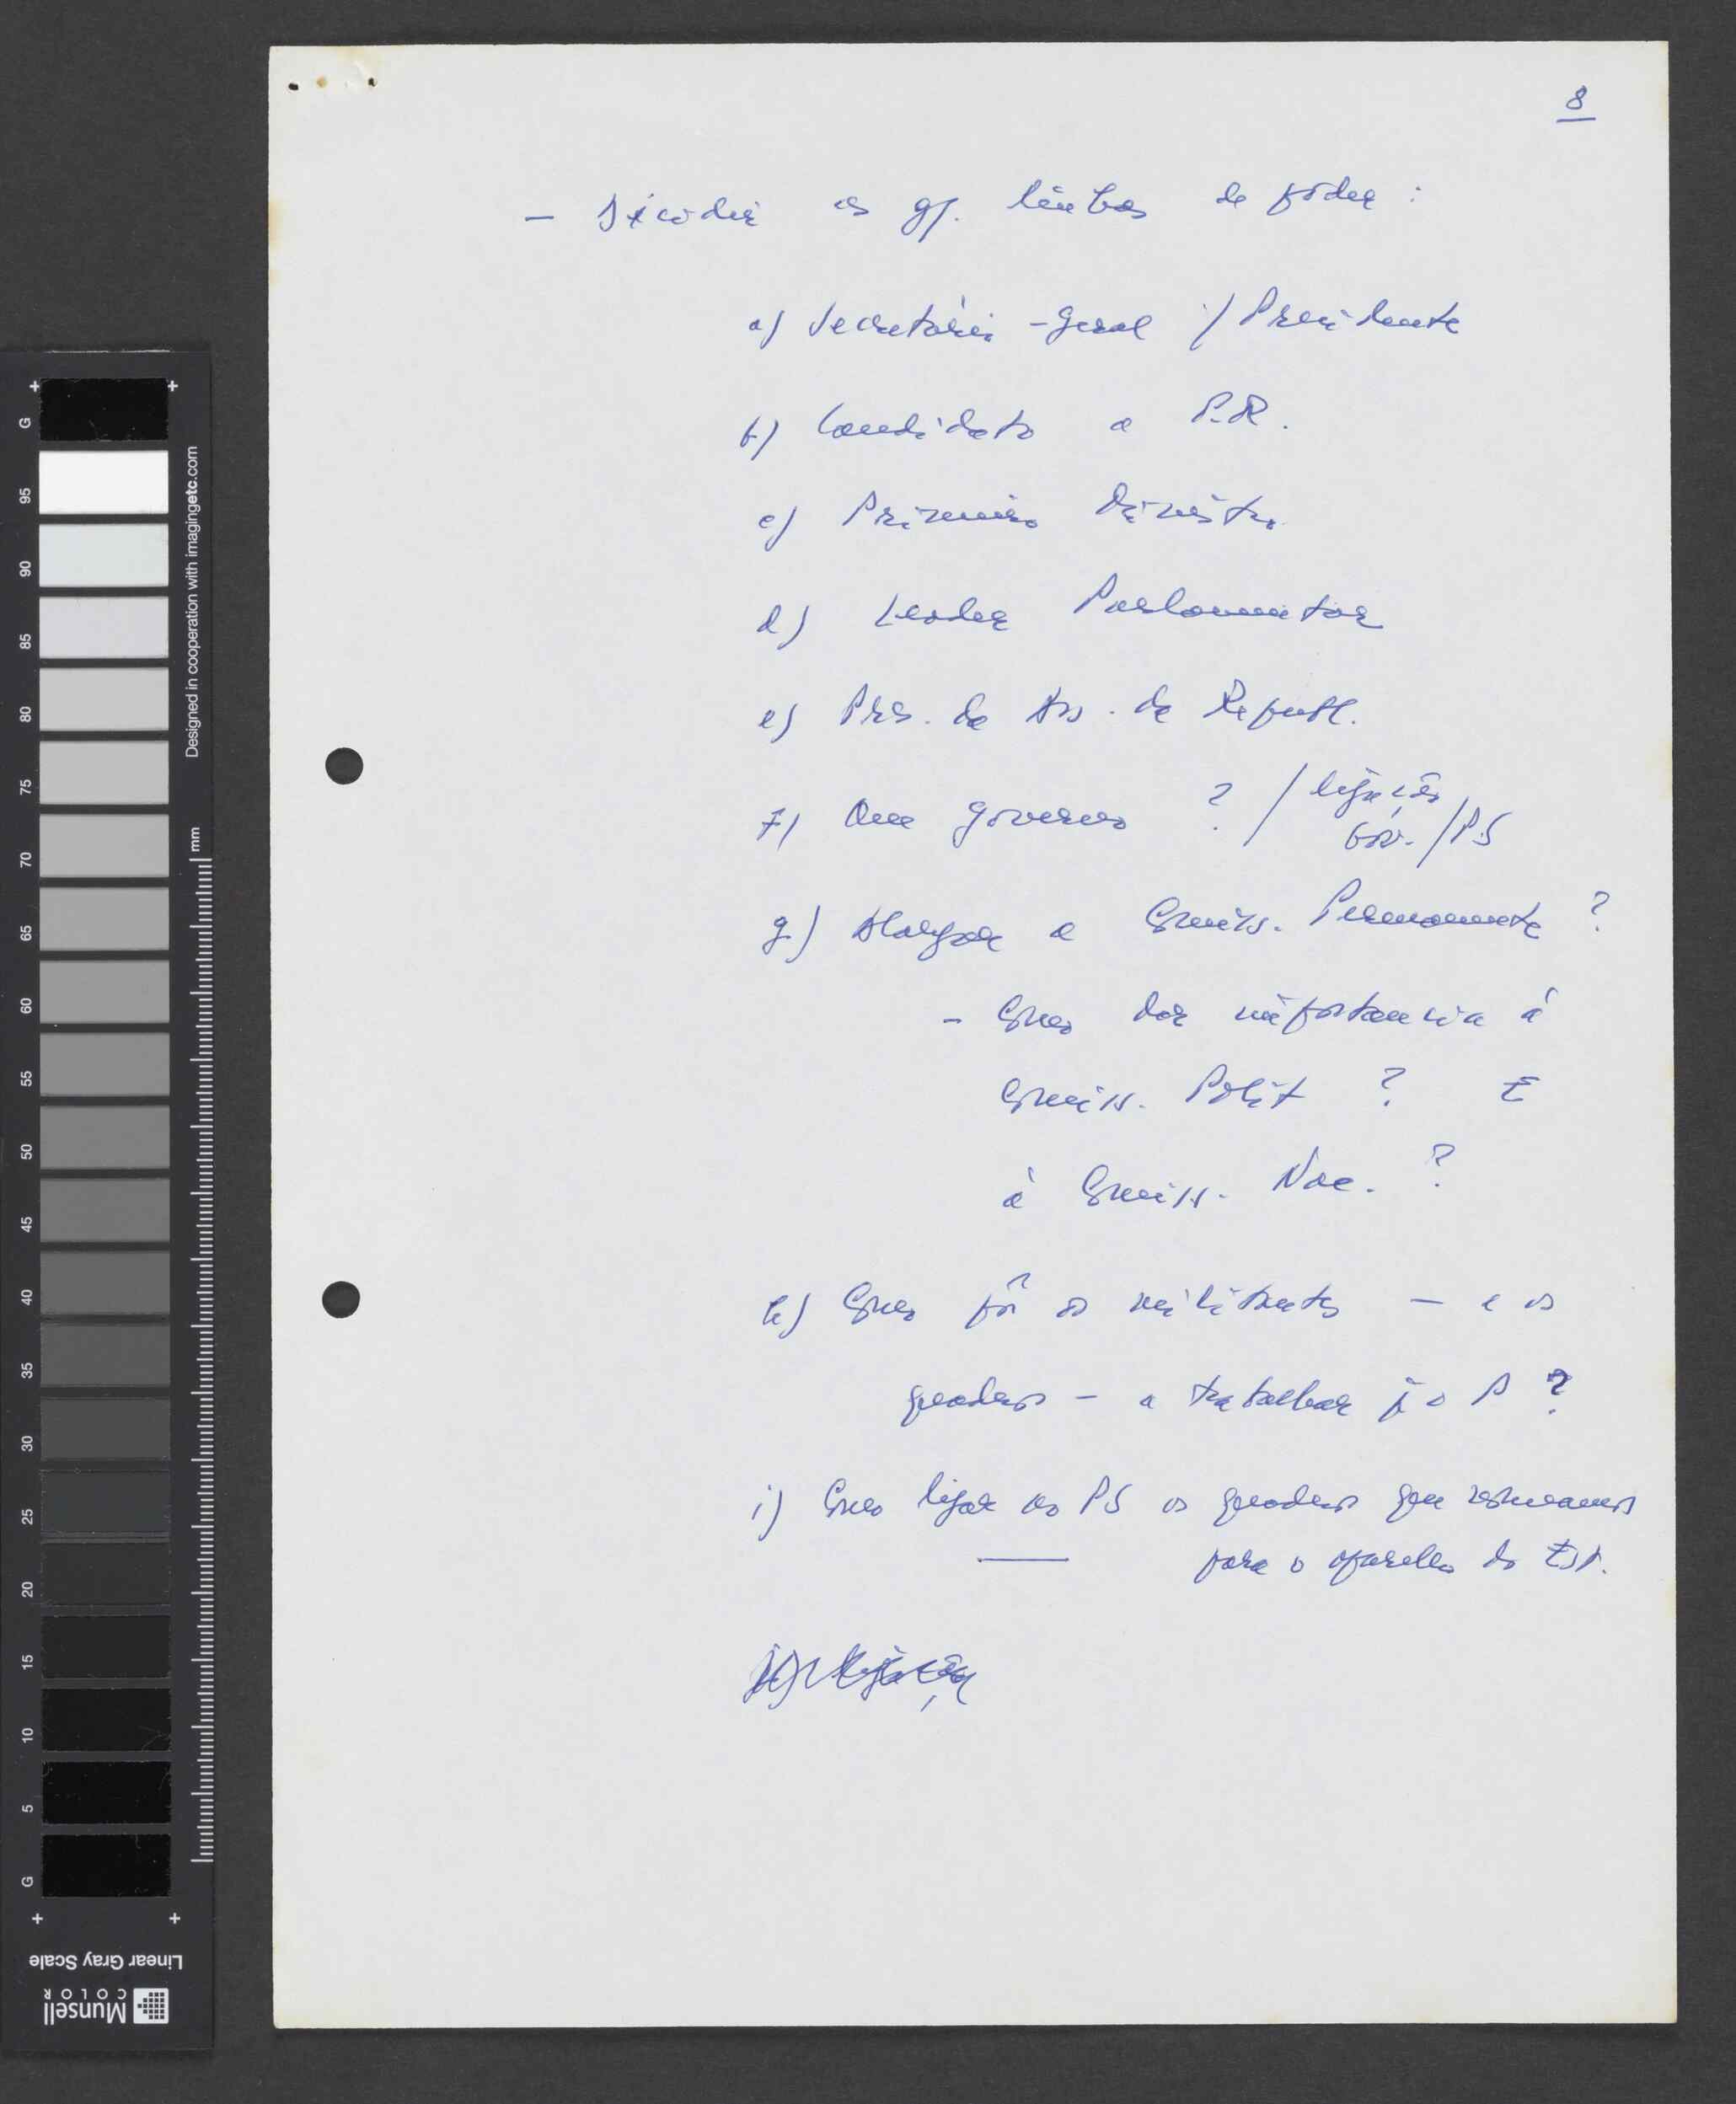 8
— Decidir as gr. linhas de poder :
a) Secretário-Geral / Presidente
b) Candidato a P.R.
c) Primeiro Ministro
d) Leader Parlamentar
e) Pres. da Ass. da Republ.
f) Que Governo ? / ligação
Gov. / PS
g) Alargar a Comiss. Permanente ?
- Como dar importancia á
Comiss. Polit ? E
à Comiss. Nac. ?
h) Como pôr os militantes — e os
quadros — a trabalhar p o P ?
i) Como ligar ao PS os quadros que
para o aparelho do Est.
G 95 90 85 80 75 70 65 60 55 50 45 40 35 30 25 20 15 10 5 G
Designed in cooperation with imagingetc.com
mm
Linear Gray Scale
Munsell
COLOR